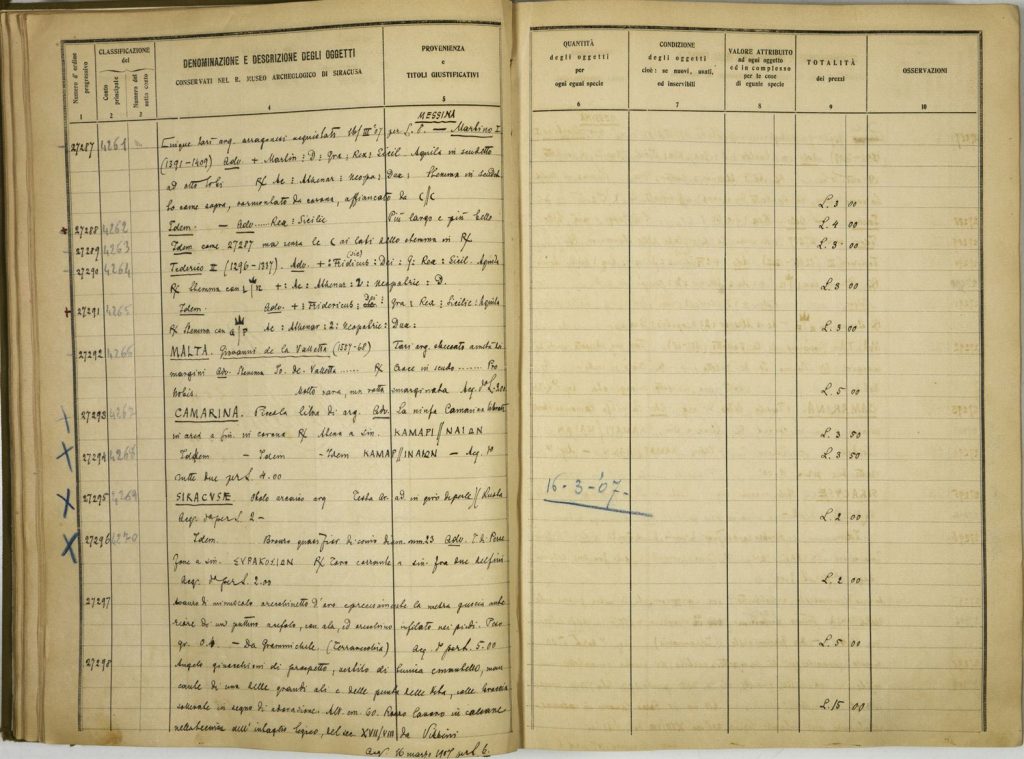 Numero d'ordine progressivo
CLASSIFICAZIONE
del
Conto principale
Numero del sotto conto
DENOMINAZIONE E DESCRIZIONE DEGLI OGGETTI
CONSERVATI NEL R. MUSEO ARCHEOLOGICO DI SIRACUSA
PROVENIENZA
e
TITOLI GIUSTIFICATIVI
1 2 3 4 5
MESSINA
27287 4261 Cinque tarì arg. arragonesi acquistati 16/III°07 per L. — Martino I
(1391-1409) Adv. + Martin: D: Gra: Rex: Sicil Aquila in scudetto
ad otto lobi R/ Ac: Athenar: Neopa: Dux: Stemma in scudet-
to come sopra, sormontato da corona, affiancato da C/C
27288 4262 Idem. — Adv. ..... Rex: Sicilie Più largo e più bello
27289 4263 Idem come 27287 ma senza le C ai lati dello stemma in R/
27290 4264 Federico II (1296-1337). Adv. +: Fridicus: (sic) Dei: G: Rex: Sicil. Aquila
R/ Stemma con +: Ac: Athenar: 2: Neopatrie: D.
27291 4265 Idem. Adv. +: Fridericus: Dei: Gra: Rex: Sicilie: Aquila
R/ Stemma con Ac: Athenar: 2: Neopatrie: Dux:
27292 4266 MALTA. Giovanni de la Valletta (1557-68) Tarì arg.
margini Adv. Stemma Io. de. Valletta ...... R/ Croce in scudo ........ Pro
nobis. Molto raro, ma rotto emarginato Acq. L. 200
27293 4267 CAMARINA. Piccola litra di arg. Adv. La ninfa Camarina
in aria a sin. in corona R/ Atena a sin. KAMAPI//NAION
27294 4268 Idem — Idem — Idem KAMAP//INAION — Acq.
tutte due per L. 4.00
27295 4269 SIRACVSÆ Obolo arcaico arg Testa Ar. ad. in giro di perle)( Ruota
Acq. per L 2 -
27296 4270 Idem. Bronzo quasi fior di conio diam. mm. 23 Adv. T. di Perse
fone a sin. SYPAKOSION R/ Toro corrente a sin. fra due delfini
Acq. per L. 2.00
27297
di un puttino acefalo, con ala, ed orecchino infilato nei piedi. Peso
gr. 0.4 — Da Grammichele (Terranuova) Acq. per L. 5.00
27298 Angelo ginocchioni di prospetto, vestito di tunica man
cante di una delle grandi ali e delle punta delle dita, colle braccia
in segno di adorazione. Alt. cm. 60. Rozzo lavoro in
nella tecnica dell'intaglio ligneo, del sec XVII/VIII da Vizzini
Acq. 16 marzo 1907 per L 6.
QUANTITÀ
degli oggetti
per
ogni eguni specie
6
CONDIZIONE
degli oggetti
cioè: se nuovi, usati,
ed inservibili
7
VALORE ATTRIBUITO
ad ogni oggetto
ed in complesso
per le cose
di eguale specie
8
TOTALITÀ
dei prezzi
9
OSSERVAZIONI
10
L. 3 00
L. 4 00
L. 3 00
L. 3 00
L. 3 00
L. 5 00
L. 3 50
L. 3 50
16-3-07-
L. 2 00
L. 2 00
L. 5 00
L. 15 00